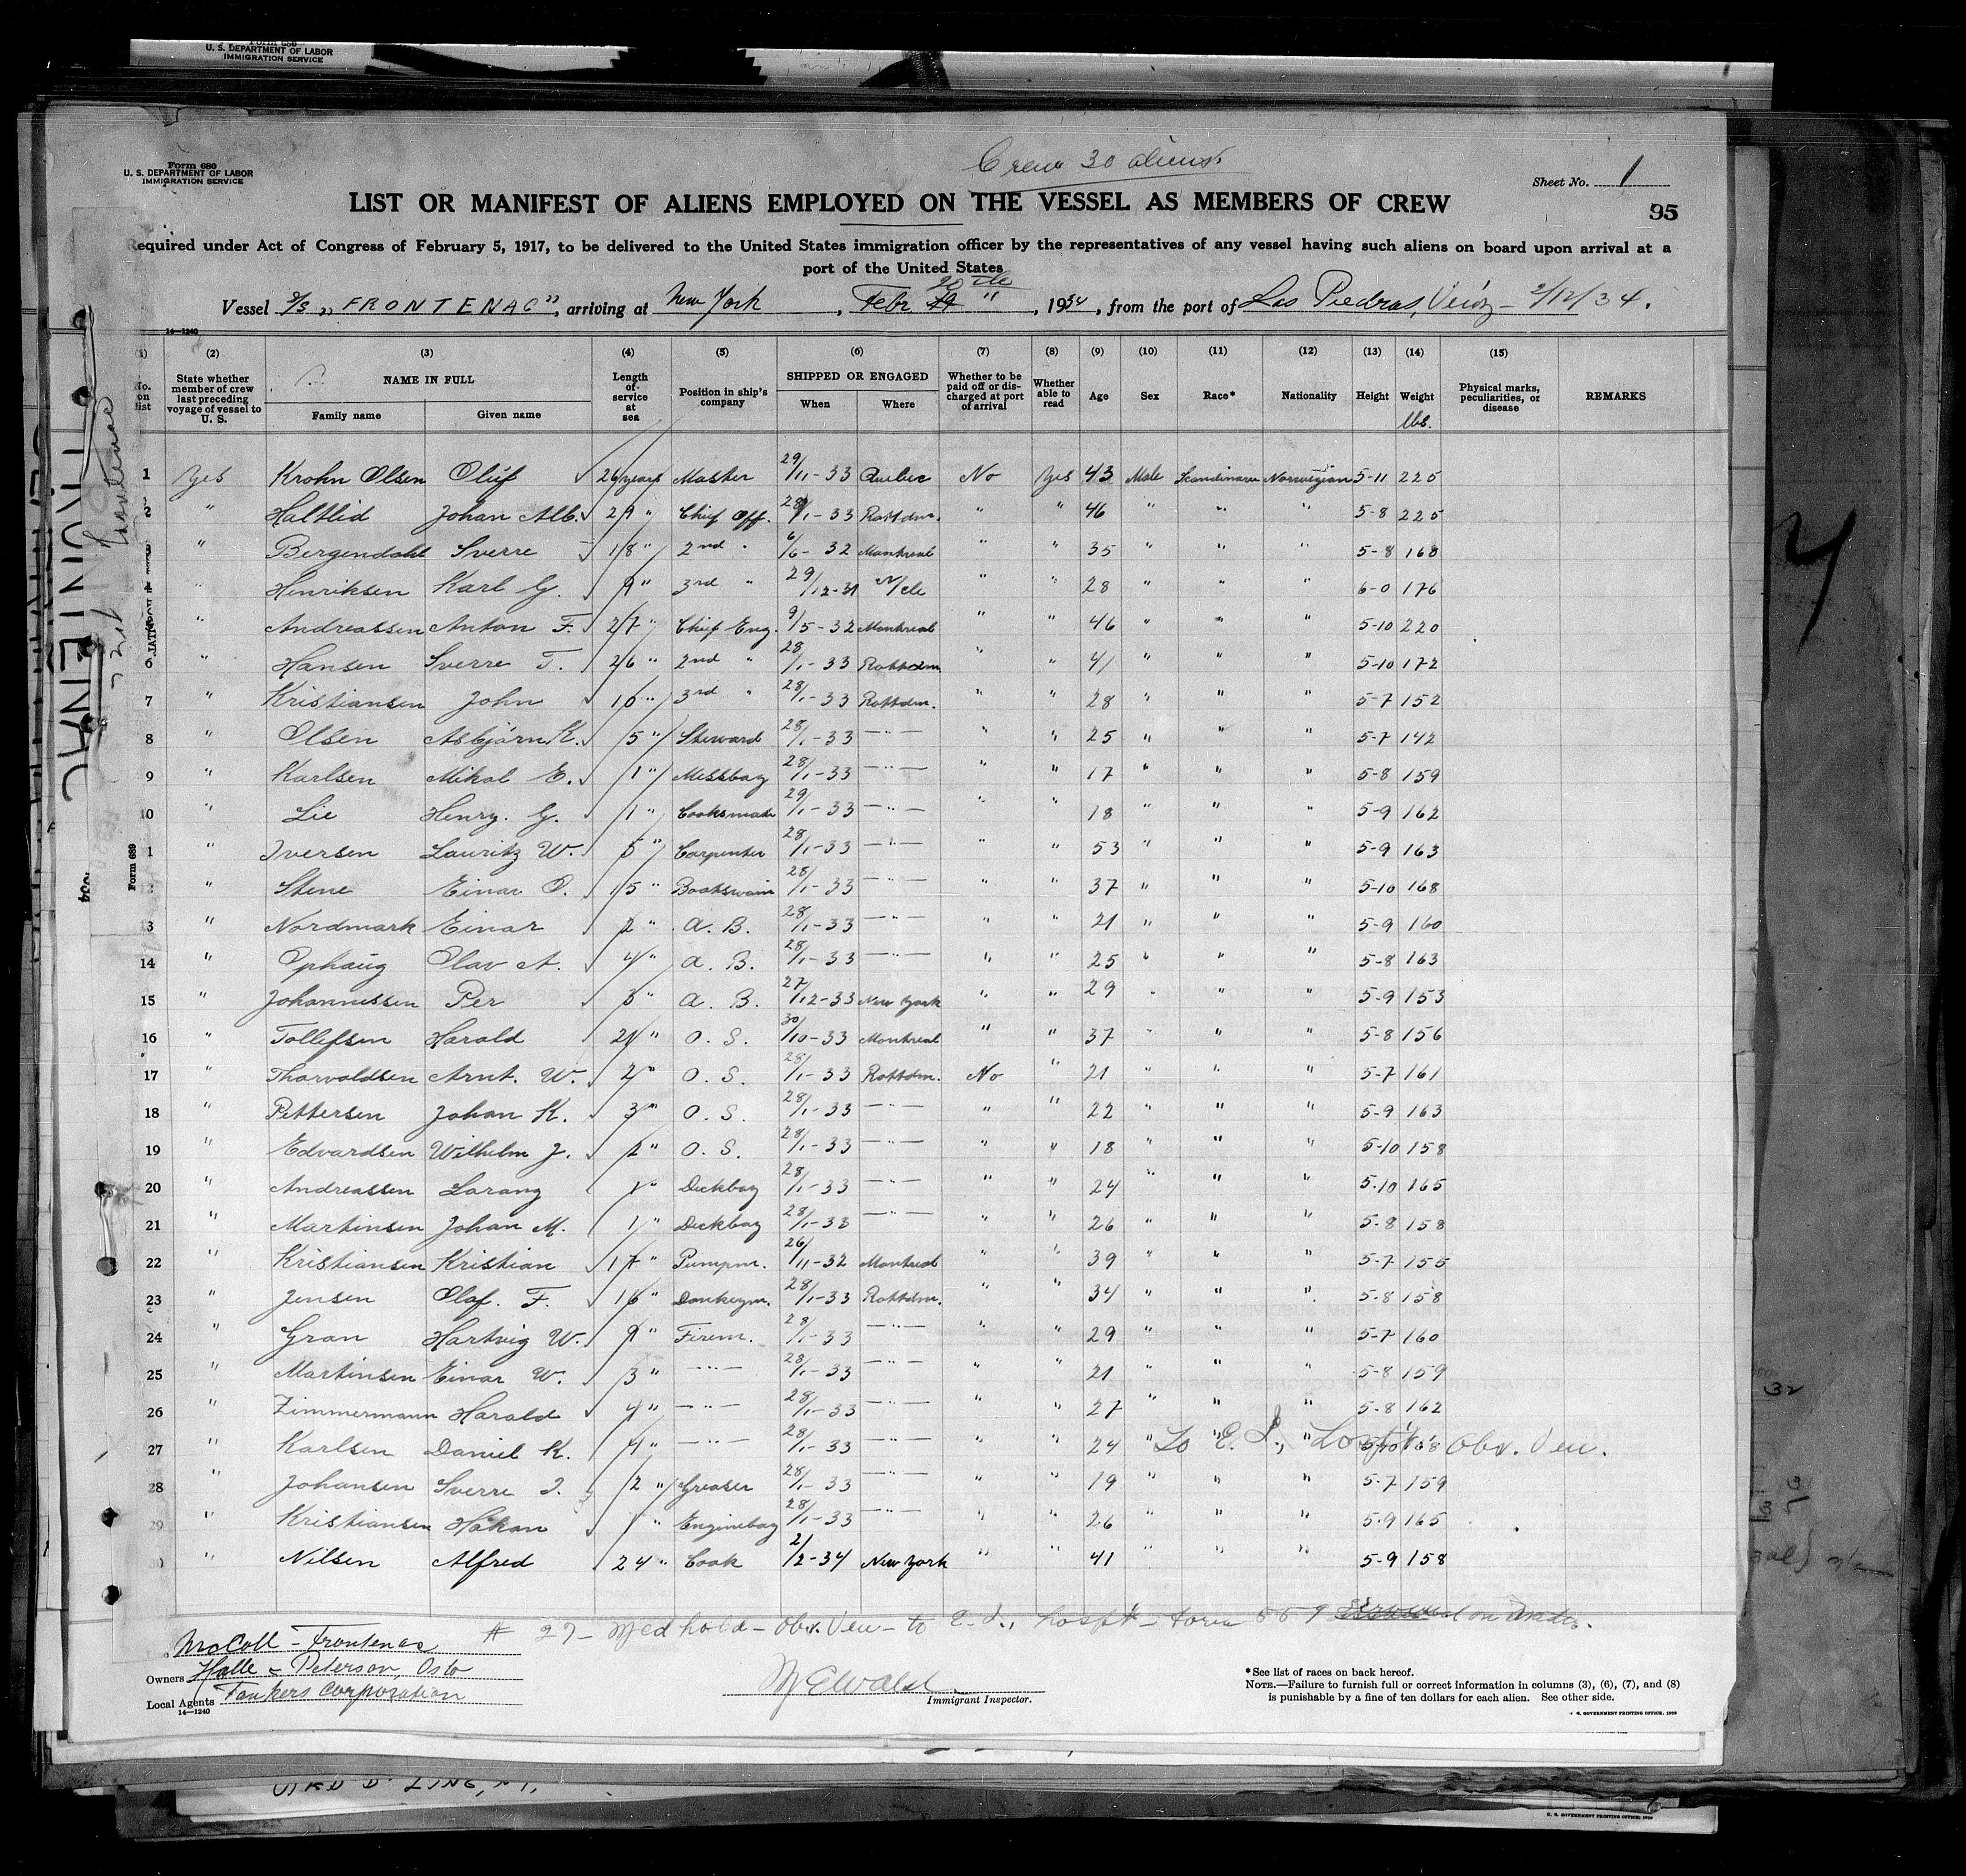 Form 680
U. S. DEPARTMENT OF LABOR
IMMIGRATION SERVICE
Crew 30 aliens
Form 680
U. S. DEPARTMENT OF LABOR
IMMIGRATION SERVICE
Sheet No. 1
LIST OR MANIFEST OF ALIENS EMPLOYED ON THE VESSEL AS MEMBERS OF CREW
95
Required under Act of Congress of February 5, 1917, to be delivered to the United States immigration officer by the representatives of any vessel having such aliens on board upon arrival at a
port of the United States
Vessel S/S „FRONTENAC", arriving at New York, Febr. 20th, 1934, from the port of Las Piedras, Venz - 2/12/34.
14—1240
(1) (2) (3) (4) (5) (6) (7) (8) (9) (10) (11) (12) (13) (14) (15)
No. on list State whether member of crew last preceding voyage of vessel to U. S. NAME IN FULL Family name Given name Length of service at sea Position in ship's company SHIPPED OR ENGAGED When Where Whether to be paid off or discharged at port of arrival Whether able to read Age Sex Race* Nationality Height Weight lbs. Physical marks, peculiarities, or disease REMARKS
1 Yes Krohn Olsen Oluf 26 years Master 29/11-33 Quebec No Yes 43 Male Scandinavn Norwegian 5-11 225
2 " Haltlid Johan Alb. 29 " Chief Off. 28/1-33 Rottdm. " " 46 " " " 5-8 225
3 " Bergendahl Sverre 18 " 2nd " 6/6-32 Montreal " " 35 " " " 5-8 168
4 " Henriksen Karl G. 9 " 3rd " 29/12-31 " " 28 " " " 6-0 176
" Andreassen Anton F. 27 " Chief Eng. 9/5-32 Montreal " " 46 " " " 5-10 220
6 " Hansen Sverre T. 26 " 2nd " 28/1-33 Rottdm " " 41 " " " 5-10 172
7 " Kristiansen John 10 " 3rd " 28/1-33 Rottdm. " " 28 " " " 5-7 152
8 " Olsen Asbjörn K. 5 " Steward 28/1-33 — " — " " 25 " " " 5-7 142
9 " Karlsen Mikal E. 1 " Messboy 28/1-33 — " — " " 17 " " " 5-8 159
10 " Lie Henry. G. 1 " Cooksmate 29/1-33 — " — " " 18 " " " 5-9 162
1 " Iversen Lauritz W. 5 " Carpenter 28/1-33 — " — " " 53 " " " 5-9 163
2 " Stene Einar O. 15 " Boatswain 28/1-33 — " — " " 37 " " " 5-10 168
3 " Nordmark Einar 2 " A. B. 28/1-33 — " — " " 21 " " " 5-9 160
14 " Ophaug Olav A. 4 " A. B. 28/1-33 — " — " " 25 " " " 5-8 163
15 " Johannessen Per 3 " A. B. 27/12-33 New York " " 29 " " " 5-9 153
16 " Tollefsen Harald 21 " O. S. 30/10-33 Montreal " " 37 " " " 5-8 156
17 " Thorvaldsen Arnt. W. 2 " O. S. 28/1-33 Rottdm. No " 21 " " " 5-7 161
18 " Pettersen Johan K. 3 " O. S. 28/1-33 — " — " " 22 " " " 5-9 163
19 " Edvardsen Wilhelm J. 2 " O. S. 28/1-33 — " — " " 18 " " " 5-10 158
20 " Andreassen Lorang 1 " Deckboy 28/1-33 — " — " " 24 " " " 5-10 165
21 " Martinsen Johan M. 1 " Deckboy 28/1-33 — " — " " 26 " " " 5-8 158
22 " Kristiansen Kristian 17 " Pumpm. 26/11-32 Montreal " " 39 " " " 5-7 155
23 " Jensen Olaf. F. 16 " Donkeym. 28/1-33 Rottdm. " " 34 " " " 5-8 158
24 " Gran Hartvig W. 9 " Firem. 28/1-33 — " — " " 29 " " " 5-7 160
25 " Martinsen Einar W. 3 " — " — 28/1-33 — " — " " 21 " " " 5-8 159
26 " Zimmermann Harald 4 " — " — 28/1-33 — " — " " 27 " " " 5-8 162
27 " Karlsen Daniel K. 4 " — " — 28/1-33 — " — " " 24 " " " To E. I., Hospt Obs. Ven.
28 " Johansen Sverre 2 " Greaser 28/1-33 — " — " " 19 " " " 5-7 159
29 " Kristiansen Håkon 1 " Engineboy 28/1-33 — " — " " 26 " " " 5-9 165
" Nilsen Alfred 24 " Cook 2/2-34 New York " " 41 " " " 5-9 158
# 27 - Med hold - Obs. Ven - to E. I., hospt - form 559 served on
McColl - Frontenac
Owners Halle & Peterson, Oslo
Local Agents Tankers Corporation
14—1240
M Elwald
Immigrant Inspector.
*See list of races on back hereof.
NOTE.—Failure to furnish full or correct information in columns (3), (6), (7), and (8)
is punishable by a fine of ten dollars for each alien. See other side.
U. S. GOVERNMENT PRINTING OFFICE: 1930
FRONTENAC
Form 689